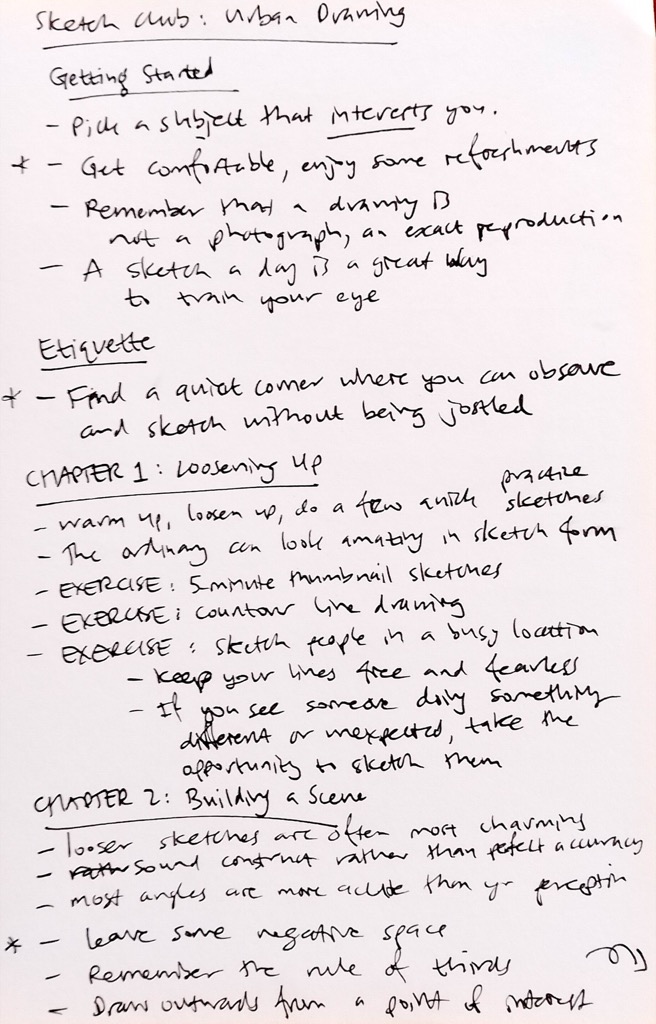 Sketch Club: Urban Drawing
Getting Started
- Pick a subject that interests you.
* - Get comfortable, enjoy some refreshments
- Remember that a drawing is
not a photograph, an exact reproduction
- A sketch a day is a great way
to train your eye
Etiquette
* - Find a quiet corner where you can observe
and sketch without being jostled
CHAPTER 1: Loosening Up
- Warm up, loosen up, do a few quick practice sketches
- The ordinary can look amazing in sketch form
- EXERCISE: 5 minute thumbnail sketches
- EXERCISE: countour line drawing
- EXERCISE: sketch people in a busy location
- Keep your lines free and fearless
- If you see someone doing something
different or unexpected, take the
opportunity to sketch them
CHAPTER 2: Building a Scene
- looser sketches are often most charming
- sound construct rather than perfect accuracy
- most angles are more acute than yr perception
* - Leave some negative space
- Remember the rule of thirds
- Draw outwards from a point of interest